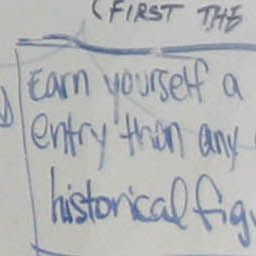 (FIRST THE
Earn yourself a
entry than any
historical fig